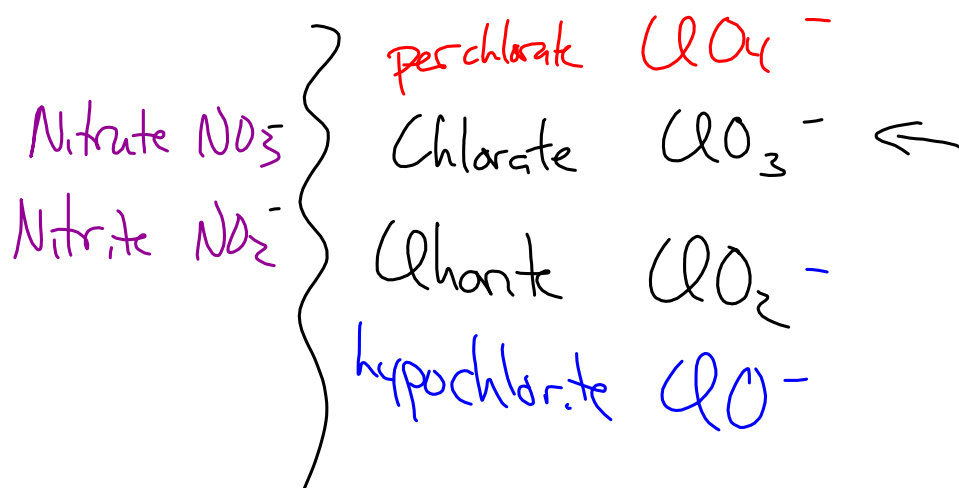 Nitrate NO₃⁻
Nitrite NO₂⁻
perchlorate ClO₄⁻
Chlorate ClO₃⁻ ←
Clhorite ClO₂⁻
hypochlorite ClO⁻